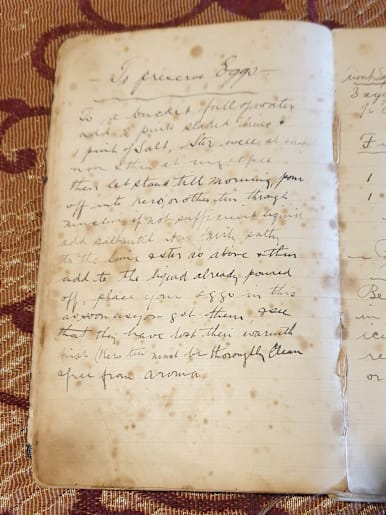 To preserve Eggs
To a bucket full of water
add 2 pints slaked lime &
1 pint of Salt, Stir well at
noon & then at night
then let stand till morning, pour
off into Kero, or other tin through
muslin if not sufficient liquid
add salt until
to the lime & stir as above & then
add to the liquid already poured
off, place your eggs in this
as soon as you get them & see
that they have lost their warmth
first (Kero tin must be thoroughly Clean
& free from aroma
3
F
1
1
Be
in
ice
re
or